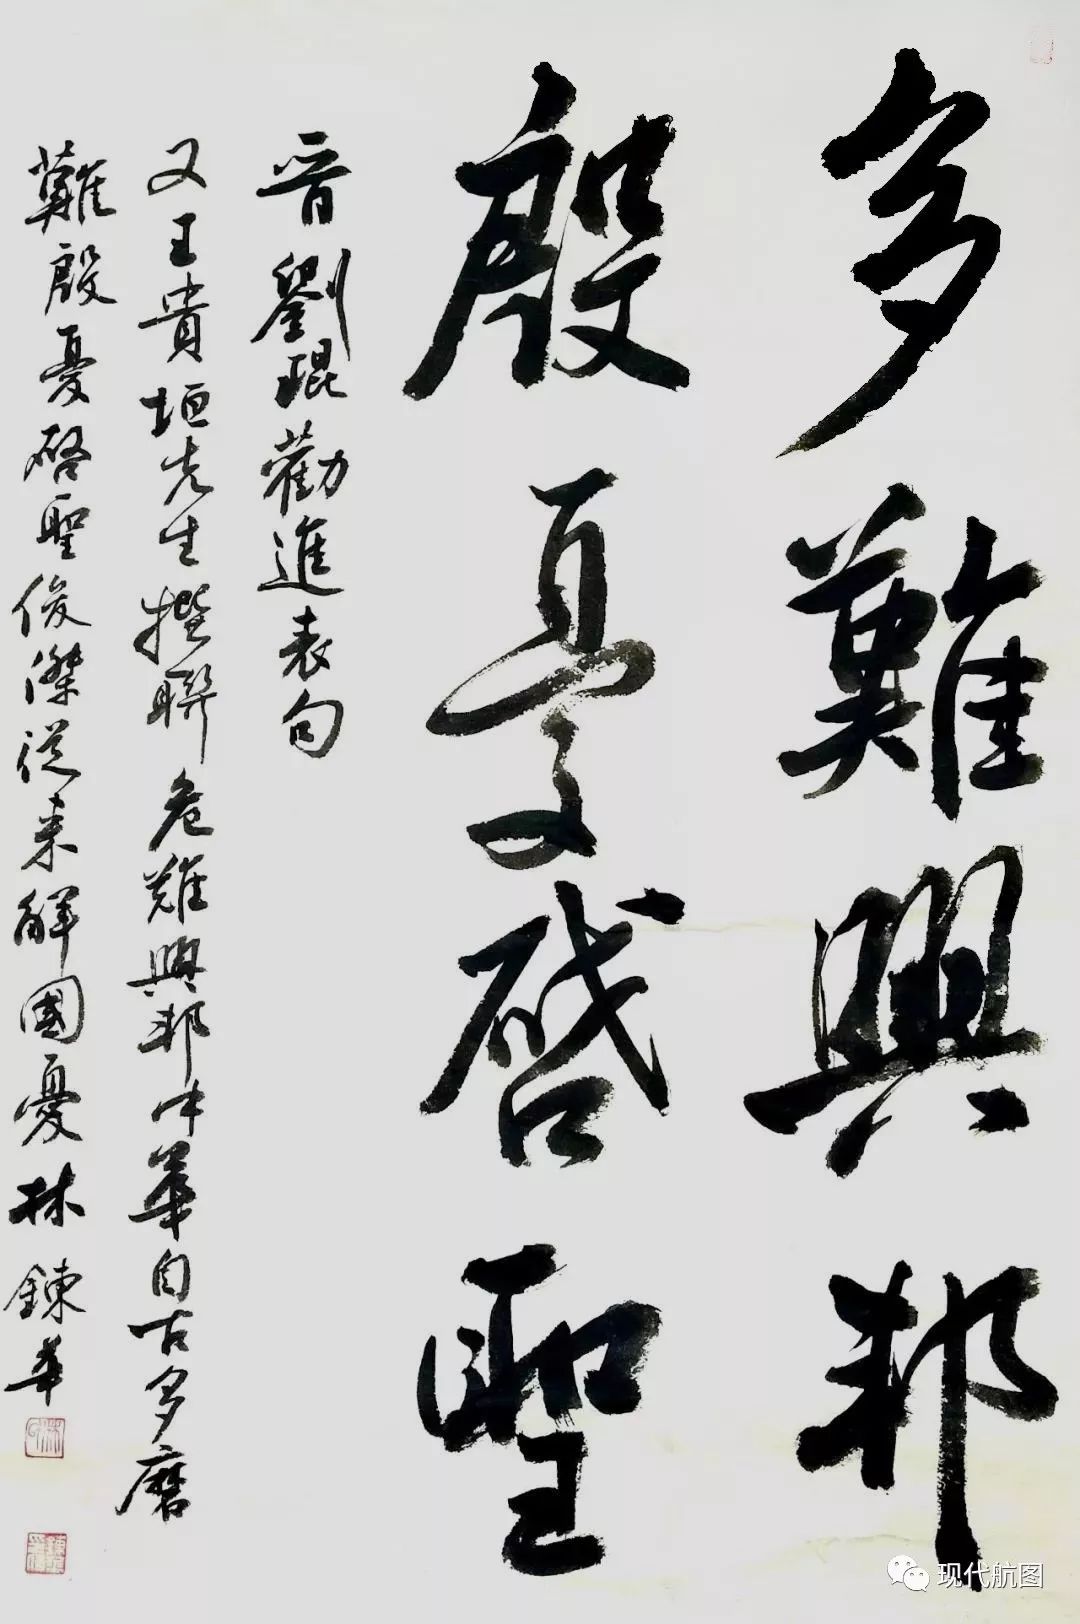 多難興邦
殷憂啓聖
晋劉琨勸進表句
又王貴垣先生撰聯危難興邦中華自古多磨
難殷憂啓聖俊傑從来解國憂林鍊華
现代航图